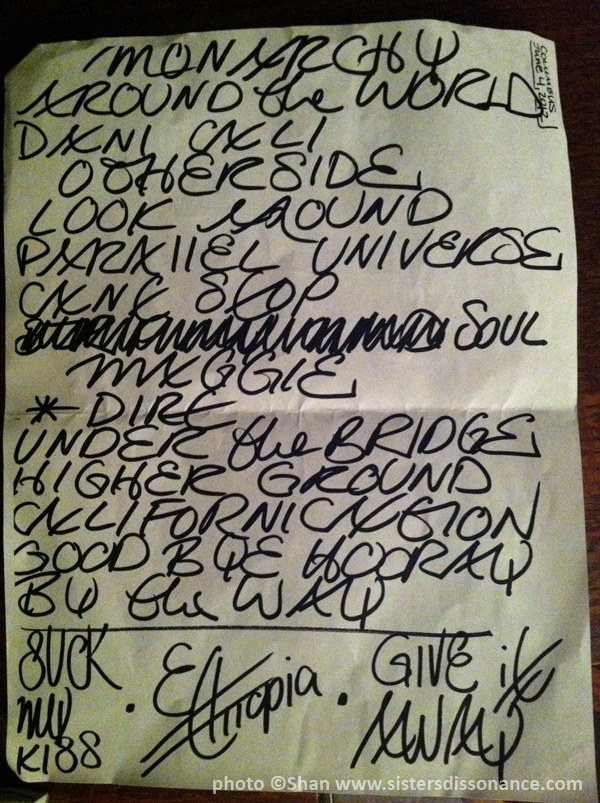 MONARCHY
COLUMBUS
JUNE 4, 2012
AROUND the WORLD
DANI CALI
OTHERSIDE
LOOK AROUND
PARAllEL UNIVERSE
CANT STOP
SOUL
MAGGIE
* DIRT
UNDER the BRIDGE
HIGHER GROUND
CALIFORNICATION
GOOD BYE HOORAY
BY the WAY
SUCK
MY
KISS
• Ethiopia •
GIVE it
AWAY
photo ©Shan www.sistersdissonance.com